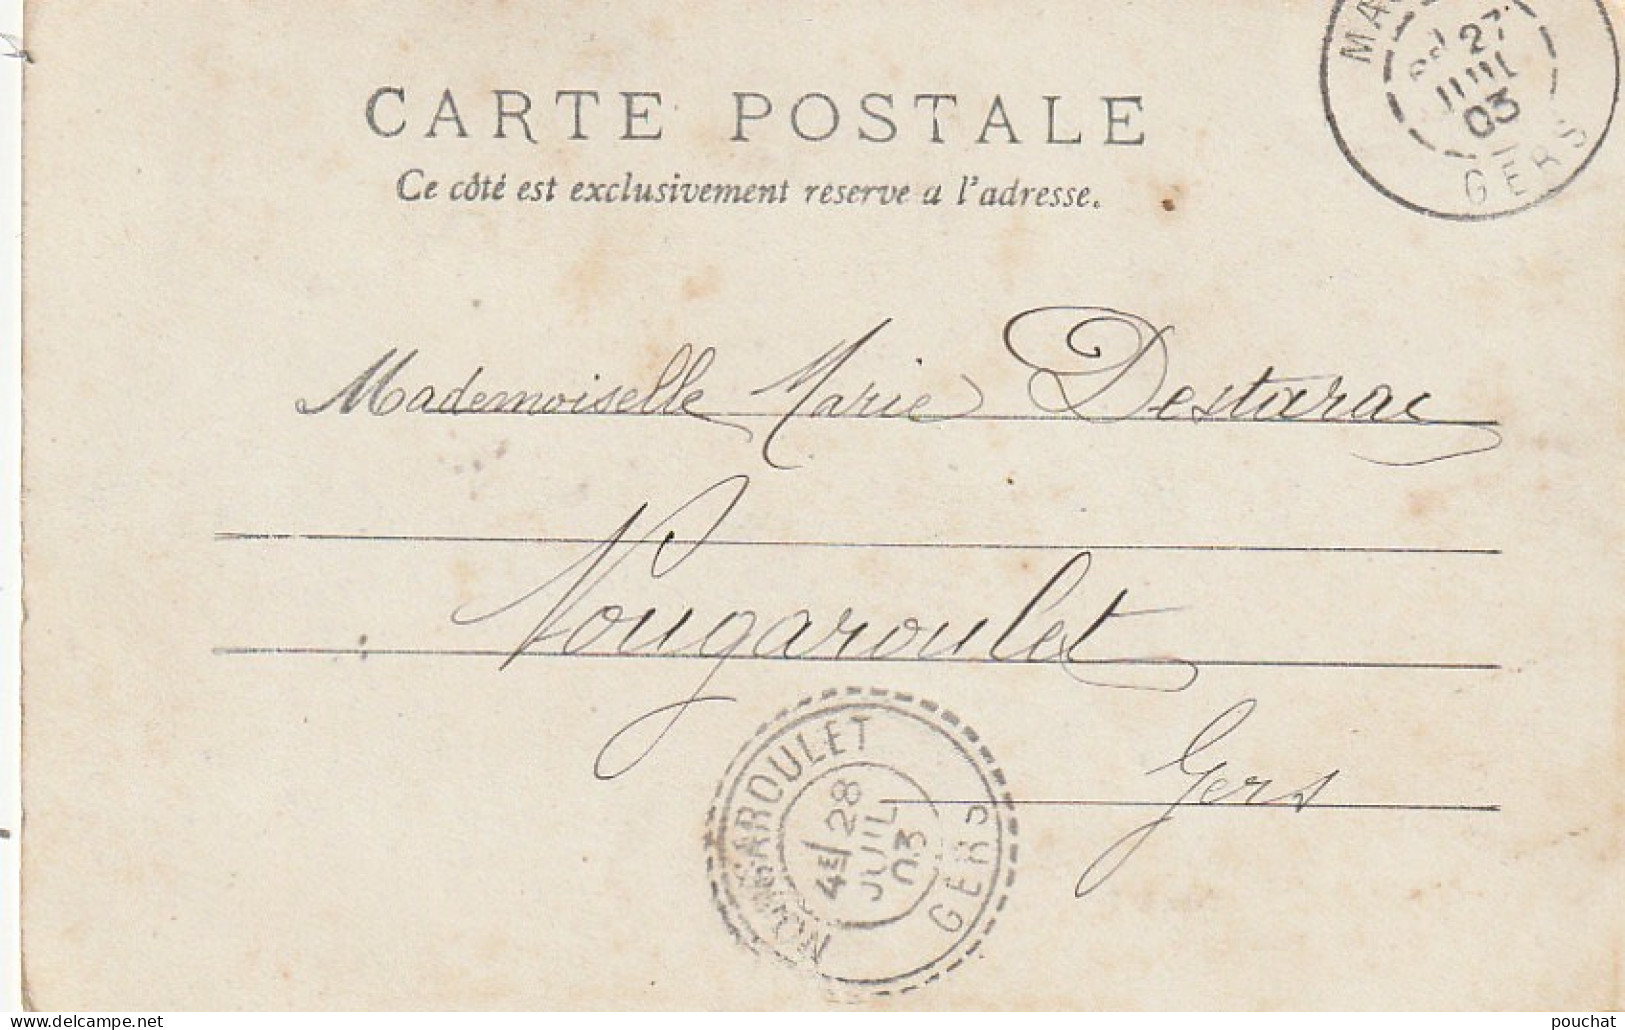 CARTE POSTALE
Ce côté est exclusivement reserve a l'adresse.
27
JUIL
03
GERS
Mademoiselle Marie Destarac
Nougaroulet
Gers
NOUGARROULET
4E/28
JUIL
03
GERS
www.delcampe.net
pouchat